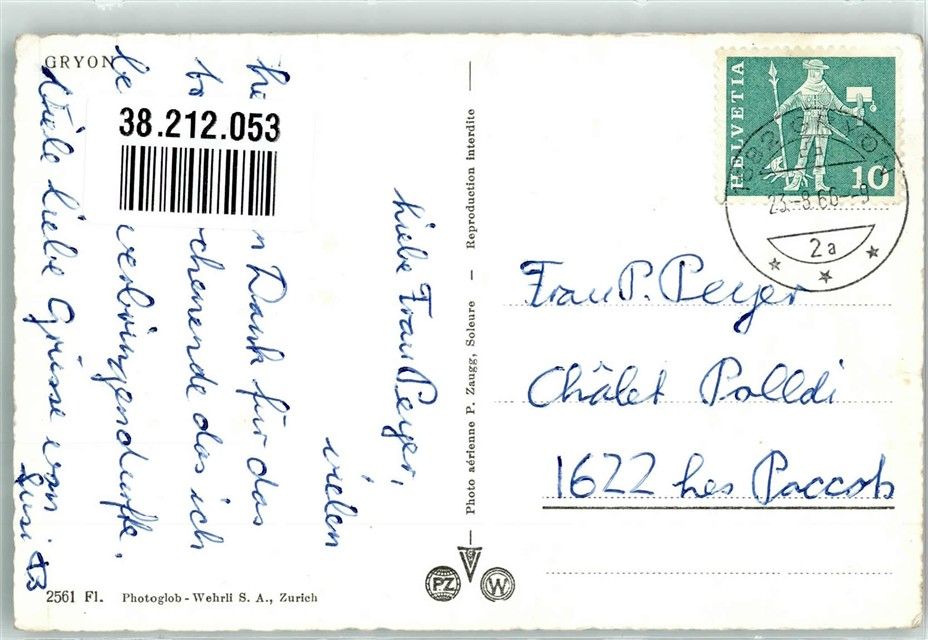 GRYON
38.212.053
Liebe Frau Peyer,
vielen
n Dank für das
chenende das ich
verbringen durfte.
Viele liebe Grüsse von
Susi
2561 Fl. Photoglob - Wehrli S. A., Zurich
Photo aérienne P. Zaugg, Soleure – Reproduction interdite
PZ
W
HELVETIA
10
1882 GRYON
23.-8.66--9
2a
Frau P. Peyer
Châlet Polldi
1622 Les Paccots